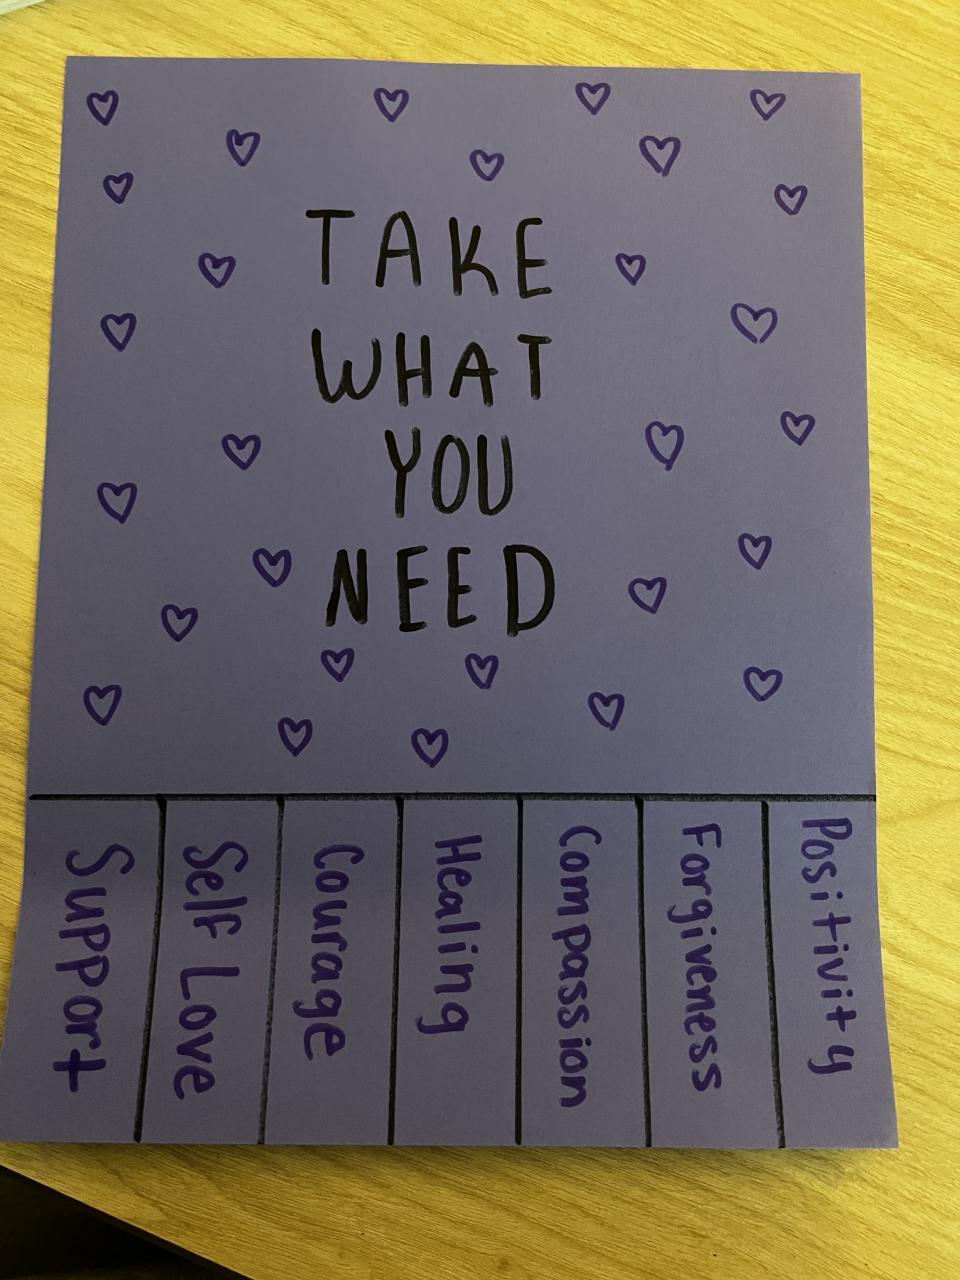 TAKE
WHAT
YOU
NEED
Support
Self Love
Courage
Healing
Compassion
Forgiveness
Positivity